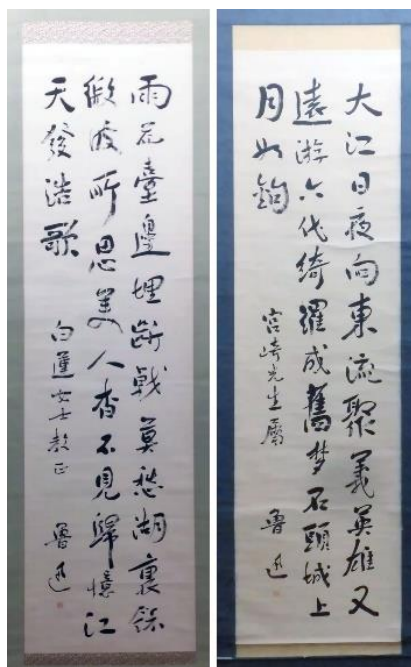 大江日夜向東流聚義英雄又
遠游六代綺羅成舊夢石頭城上
月如鉤
宮崎先生屬
魯迅
雨花臺邊埋斷戟莫愁湖裏餘
微波所思美人杳不見歸憶江
天發浩歌
白蓮女士教正
魯迅